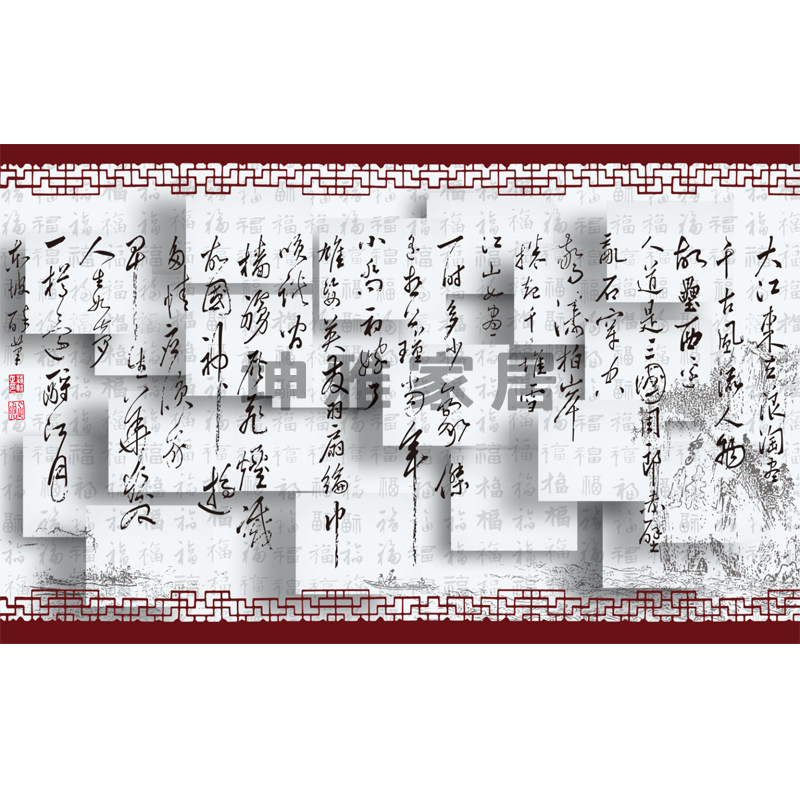 大江東去浪淘盡
千古風流人物
故壘西邊
人道是三國周郎赤壁
亂石穿空
驚濤拍岸
捲起千堆雪
江山如畫
一時多少豪傑
遙想公瑾當年
小喬初嫁了
雄姿英發羽扇綸巾
談笑間
檣櫓灰飛煙滅
故國神遊
多情應笑我
早生華髮
人生如夢
一樽還酹江月
東坡醉筆
神雅家居
福